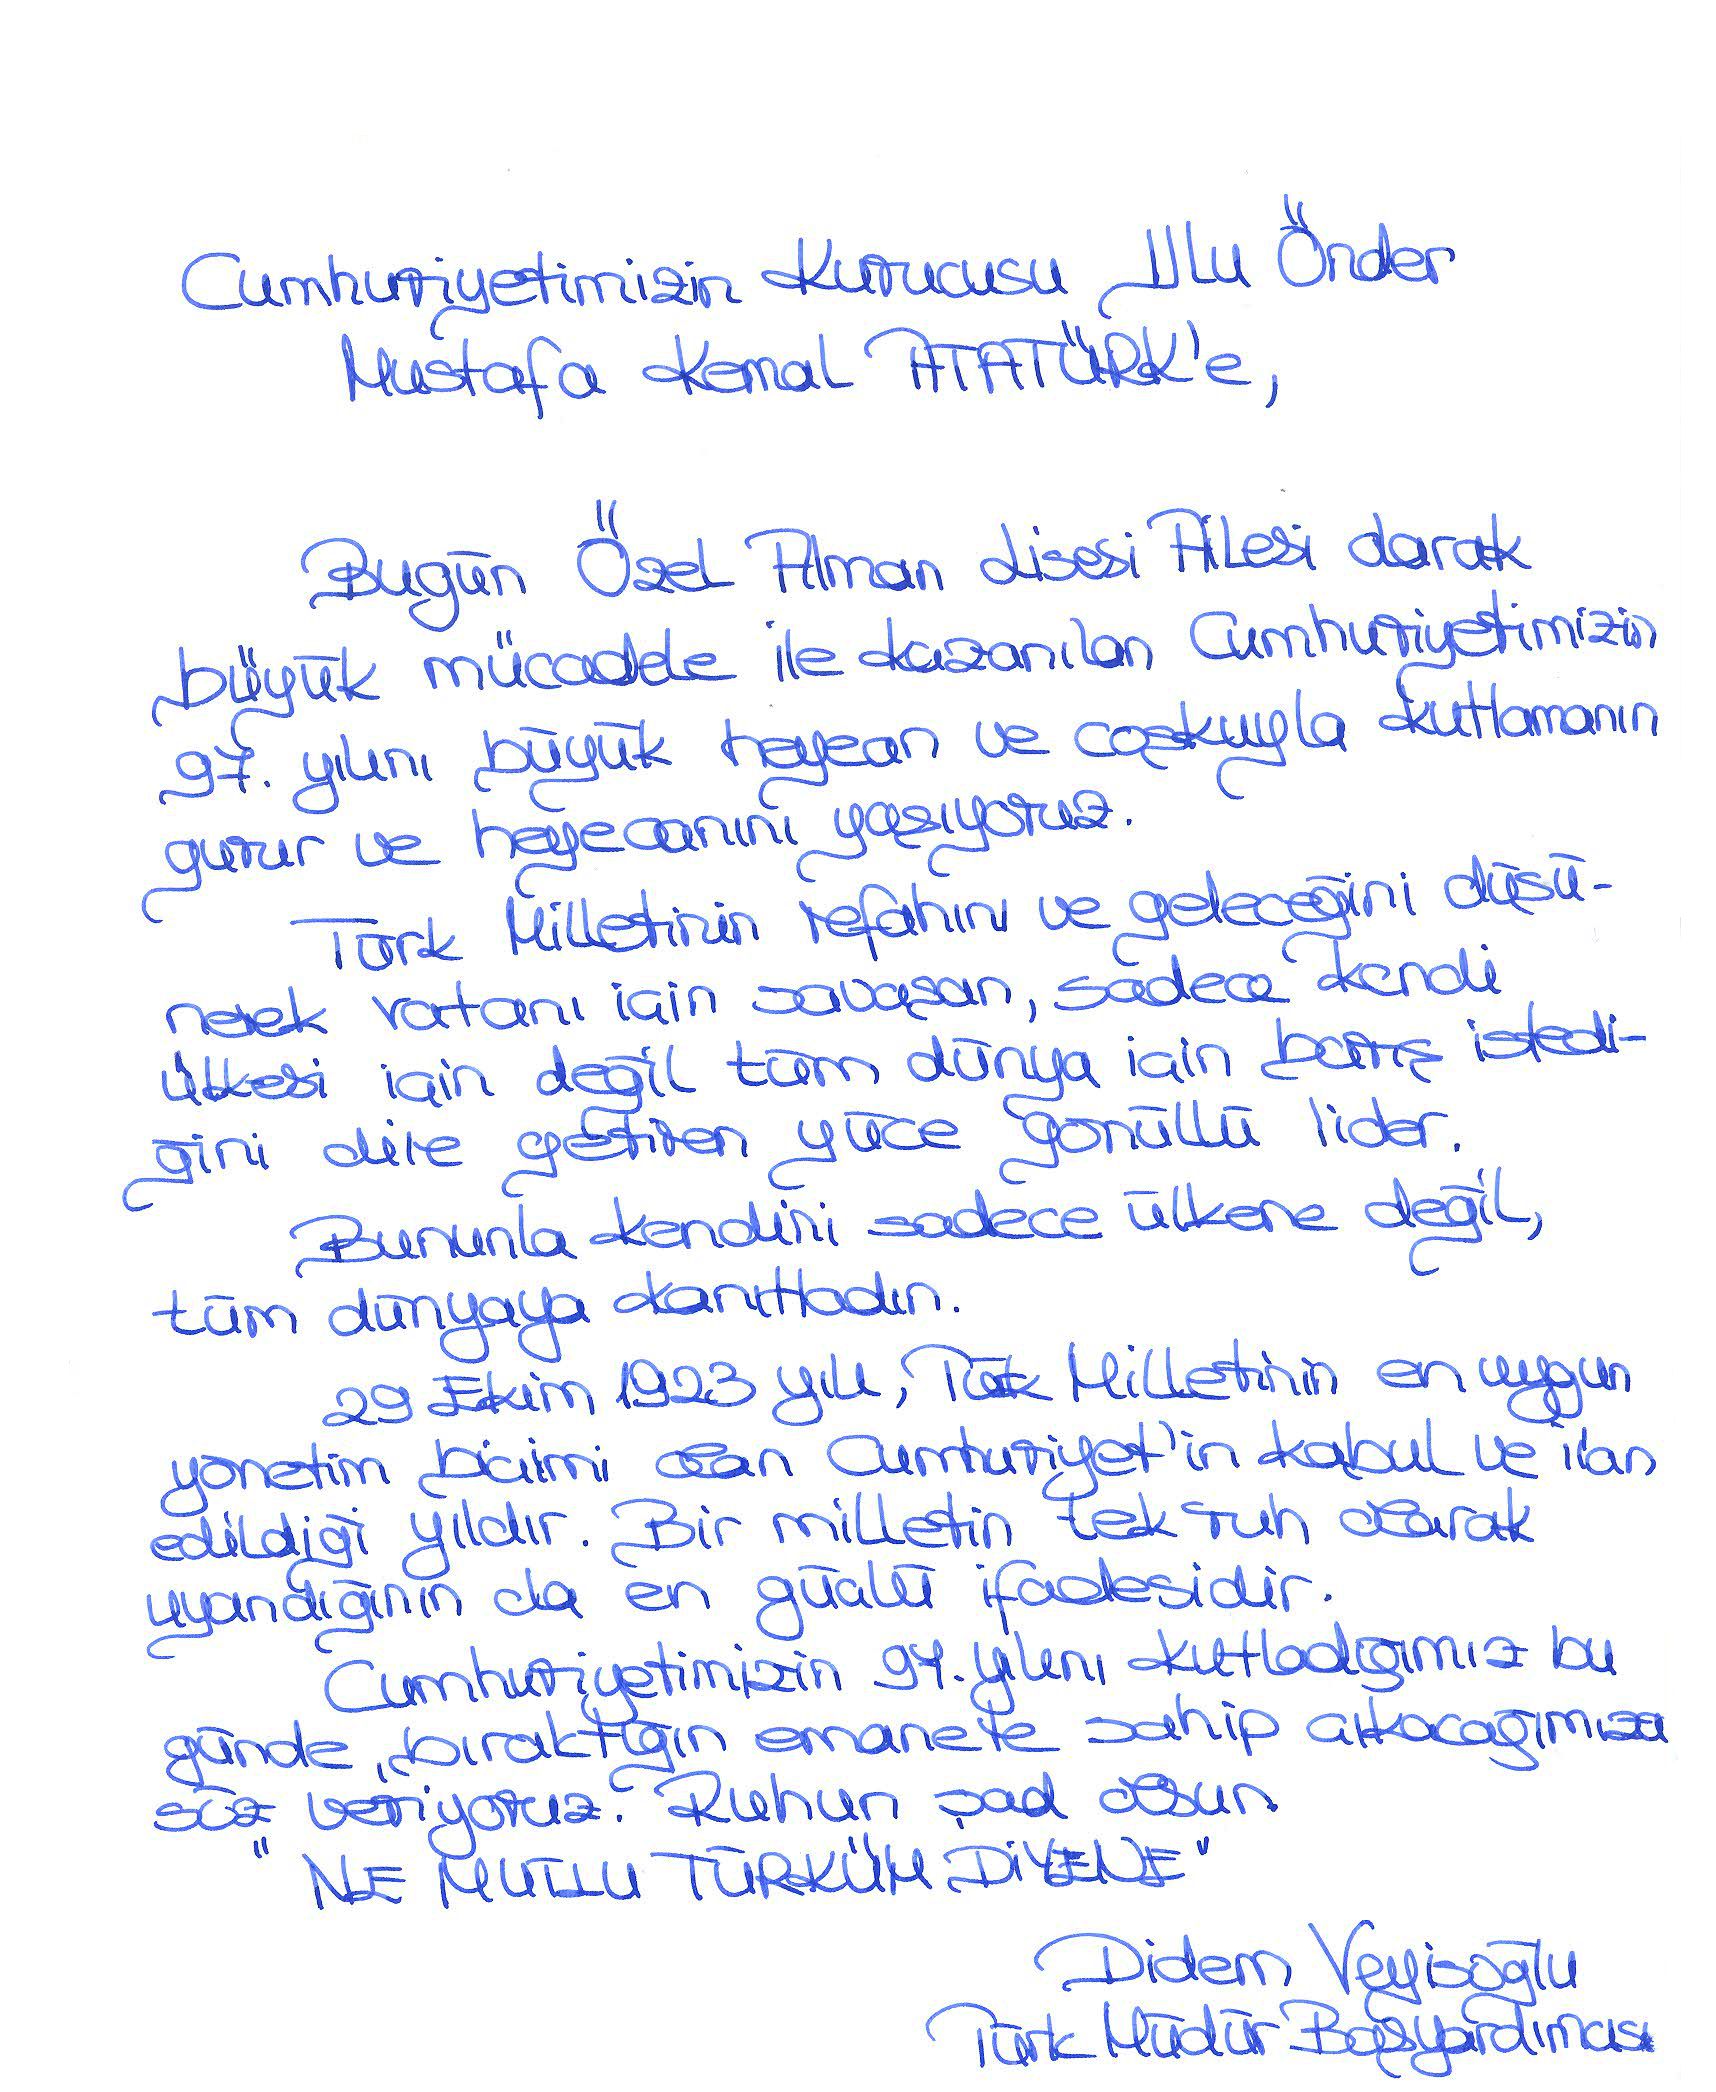 Cumhuriyetimizin Kurucusu Ulu Önder
Mustafa Kemal ATATÜRK'e,
Bugün Özel Alman Lisesi Ailesi olarak
büyük mücadele ile kazanılan Cumhuriyetimizin
97. yılını büyük heyecan ve coşkuyla kutlamanın
gurur ve heyecanını yaşıyoruz.
Türk Milletinin refahını ve geleceğini düşü-
nerek vatanı için savaşan, sadece kendi
ülkesi için değil tüm dünya için barış istedi-
ğini dile getiren yüce gönüllü lider.
Bununla kendini sadece ülkene değil,
tüm dünyaya kanıtladın.
29 Ekim 1923 yılı, Türk Milletinin en uygun
yönetim biçimi olan Cumhuriyet'in kabul ve ilan
edildiği yıldır. Bir milletin tek ruh olarak
uyandığının da en güçlü ifadesidir.
Cumhuriyetimizin 97. yılını kutladığımız bu
günde, bıraktığın emanete sahip çıkacağımıza
söz veriyoruz. Ruhun şad olsun.
"NE MUTLU TÜRKÜM DİYENE"
Didem Veyisoğlu
Türk Müdür Başyardımcısı